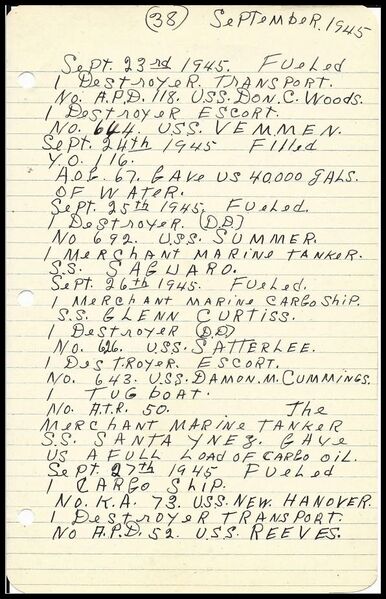 (38) SEPTEMBER. 1945
Sept. 23rd 1945. Fueled
1 Destroyer. TRANSPORT.
No. A.P.D. 118. USS. DON. C. Woods.
1 Destroyer ESCORT.
No. 644. U.S.S. VEMMEN.
Sept. 24th 1945 Filled
Y.O. 116.
A.O.G. 67. GAVE US 40,000 gALS.
OF WATER.
Sept. 25th 1945. Fueled.
1 Destroyer. (DD)
No 692. U.S.S. SUMMER.
1 MERCHANT MARINE TANKER.
S.S. SAGUARO.
Sept. 26th 1945. Fueled.
1 MERCHANT MARINE CARGO SHIP.
S.S. GLENN CURTISS.
1 Destroyer (DD)
No. 626. U.S.S. SATTERLEE.
1 DESTROYER. ESCORT.
No. 643. U.S.S. DAMON. M. CUMMINGS.
1 TUG BOAT.
No. A.T.R. 50. The
MERCHANT MARINE TANKER
SS. SANTA YNEZ. GAVE
US A FULL LOAD OF CARGO OIL.
Sept. 27th 1945 Fueled
1 CARGO SHIP.
No. K.A. 73. U.S.S. NEW. HANOVER.
1 Destroyer TRANSPORT.
No A.P.D. 52. U.S.S. REEVES.